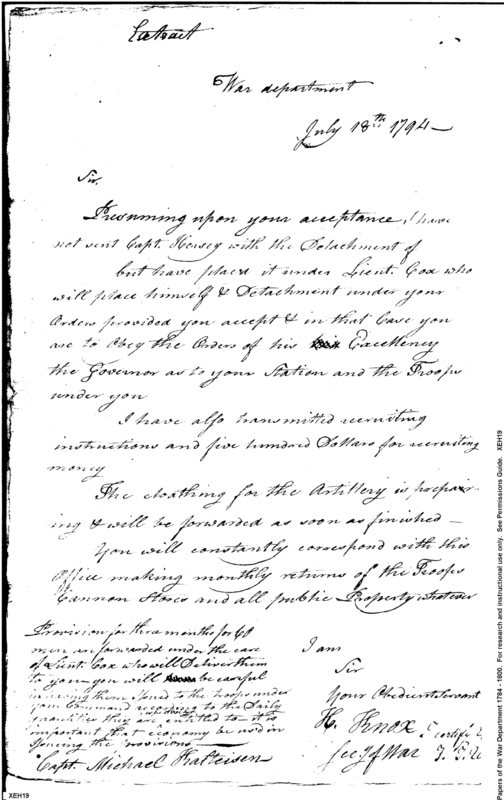 Extract
War department
July 18th 1794 —
Sir,
Presuming upon your acceptance, I have
not sent Capt. Kersey with the Detachment of
but have placed it under Lieut. Cox who
will place himself & Detachment under your
Orders provided you accept & in that Case you
are to Obey the Orders of his Excellency
the Governor as to your Station and the Troops
under you
I have also transmitted recruiting
instructions and five hundred Dollars for recruiting
money
The cloathing for the Artillery is prepair-
ing & will be forwarded as soon as finished —
You will constantly correspond with this
Office making monthly returns of the Troops
Cannon Stores and all public Property whatever
Provision for three months for 60
men are forwarded under the care
of Lieut. Cox who will Deliver them
to you — you will be careful
in having them Issued to the troops under
your Command according to the Daily
quantities they are entitled to — it is
important that economy be used in
Issueing the provisions —
Capt. Michael Kalteisen
I am
Sir
Your Obedient Servant
H. Knox
Secy of War
I certify
XEH19
Papers of the War Department 1784 - 1800. For research and instructional use only. See Permissions Guide. XEH19